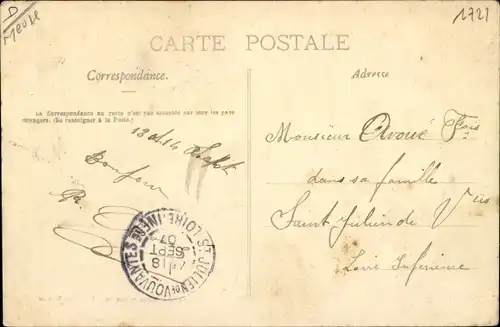 D
Meuse
1721
CARTE POSTALE
Correspondance.
Adresse
La Correspondance au recto n'est pas acceptée par tous les pays
étrangers. (Se renseigner à la Poste.)
13 at 14 Sept
Bonjour
Monsieur Avoué Fois
dans sa famille
Saint Julien de V
Loire Inférieure
ST JULIEN DE VOUVANTES
LOIRE-INFRE
18
SEPT
07